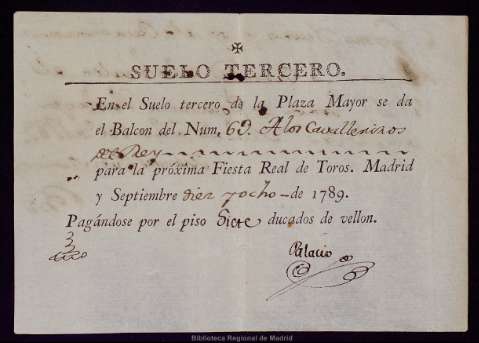 ✠
SUELO TERCERO.
En el Suelo tercero de la Plaza Mayor se da
el Balcon del Num. 69. A los Cavallerizos
del Rey
para la próxima Fiesta Real de Toros. Madrid
y Septiembre diez y ocho de 1789.
Pagándose por el piso Siete ducados de vellon.
Palacio
Biblioteca Regional de Madrid